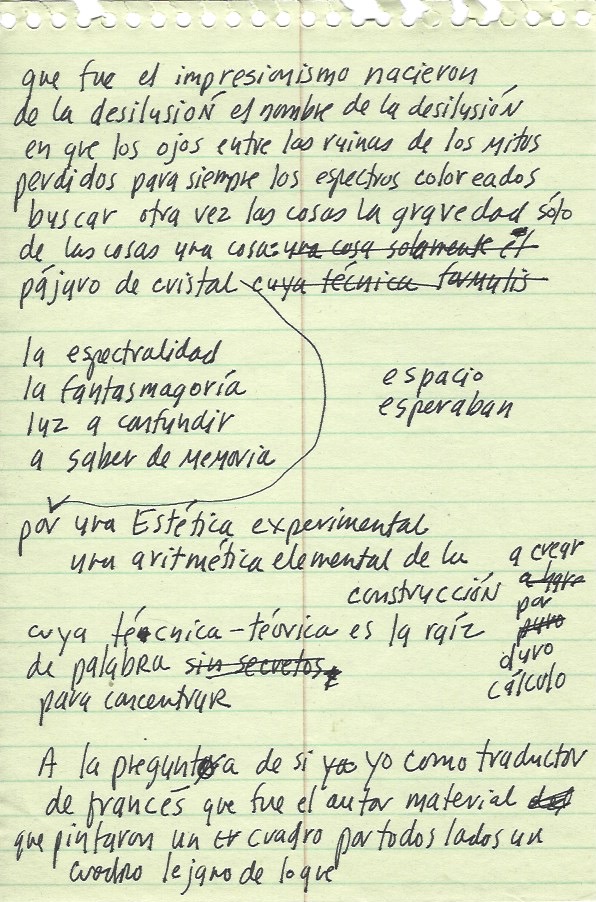 que fue el impresionismo nacieron
de la desilusión el nombre de la desilusión
en que los ojos entre las ruinas de los mitos
perdidos para siempre los espectros coloreados
buscar otra vez las cosas la gravedad sólo
de las cosas una cosa: una cosa solamente el
pájaro de cristal cuya técnica formulis
la espectralidad
la fantasmagoría
luz a confundir
a saber de memoria
espacio
esperaban
por una Estética experimental
una aritmética elemental de la
construcción
a crear
por
puro
duro
cálculo
cuya técnica-teórica es la raíz
de palabra sin secretos
para concentrar
A la pregunta de si yo yo como traductor
de francés que fue el autor material del
que pintaron un cuadro por todos lados un
cuadro lejano de lo que